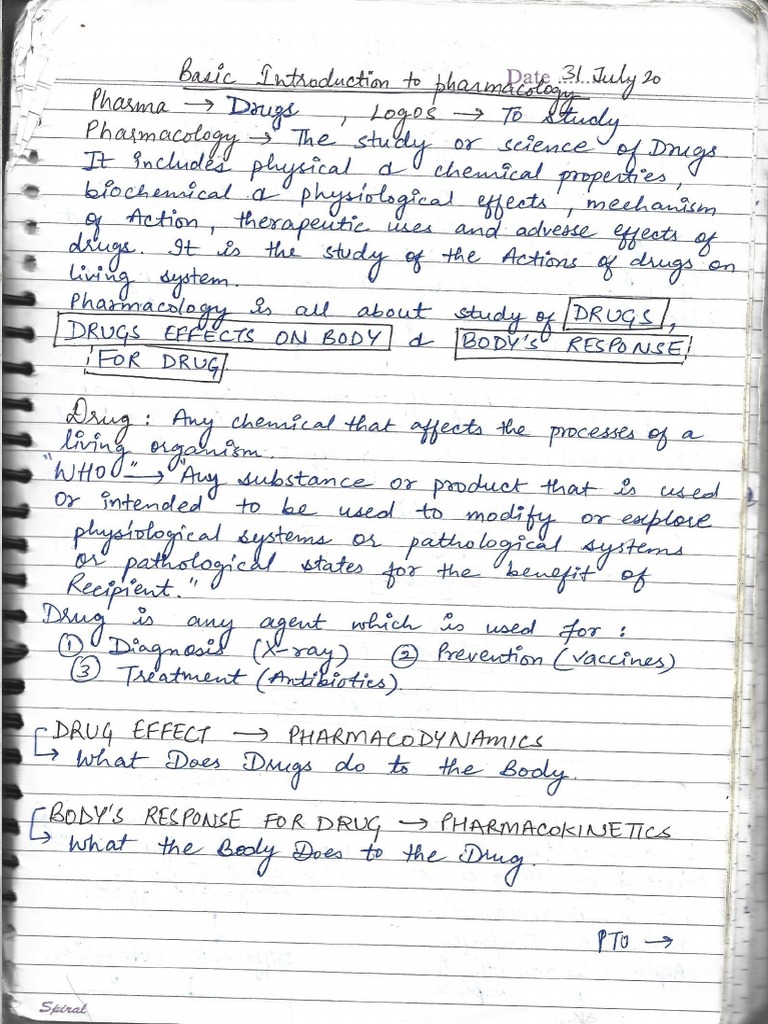 Date 31 July 20
Basic Introduction to pharmacology
Pharma → Drugs , LOGOS → To Study
Pharmacology → The study or science of Drugs
It includes physical & chemical properties,
biochemical & physiological effects, mechanism
of Action, therapeutic uses and adverse effects of
drugs. It is the study of the Actions of drugs on
living system.
Pharmacology is all about study of DRUGS,
DRUGS EFFECTS ON BODY & BODY'S RESPONSE
FOR DRUG.
Drug : Any chemical that affects the processes of a
living organism.
"WHO" → "Any substance or product that is used
or intended to be used to modify or explore
physiological systems or pathological systems
or pathological states for the benefit of
Recipient."
Drug is any agent which is used for :
① Diagnosis (X-ray) ② Prevention (vaccines)
③ Treatment (Antibiotics).
DRUG EFFECT → PHARMACODYNAMICS
↳ What Does Drugs do to the Body.
BODY'S RESPONSE FOR DRUG → PHARMACOKINETICS
↳ What the Body Does to the Drug.
PTO →
Spiral